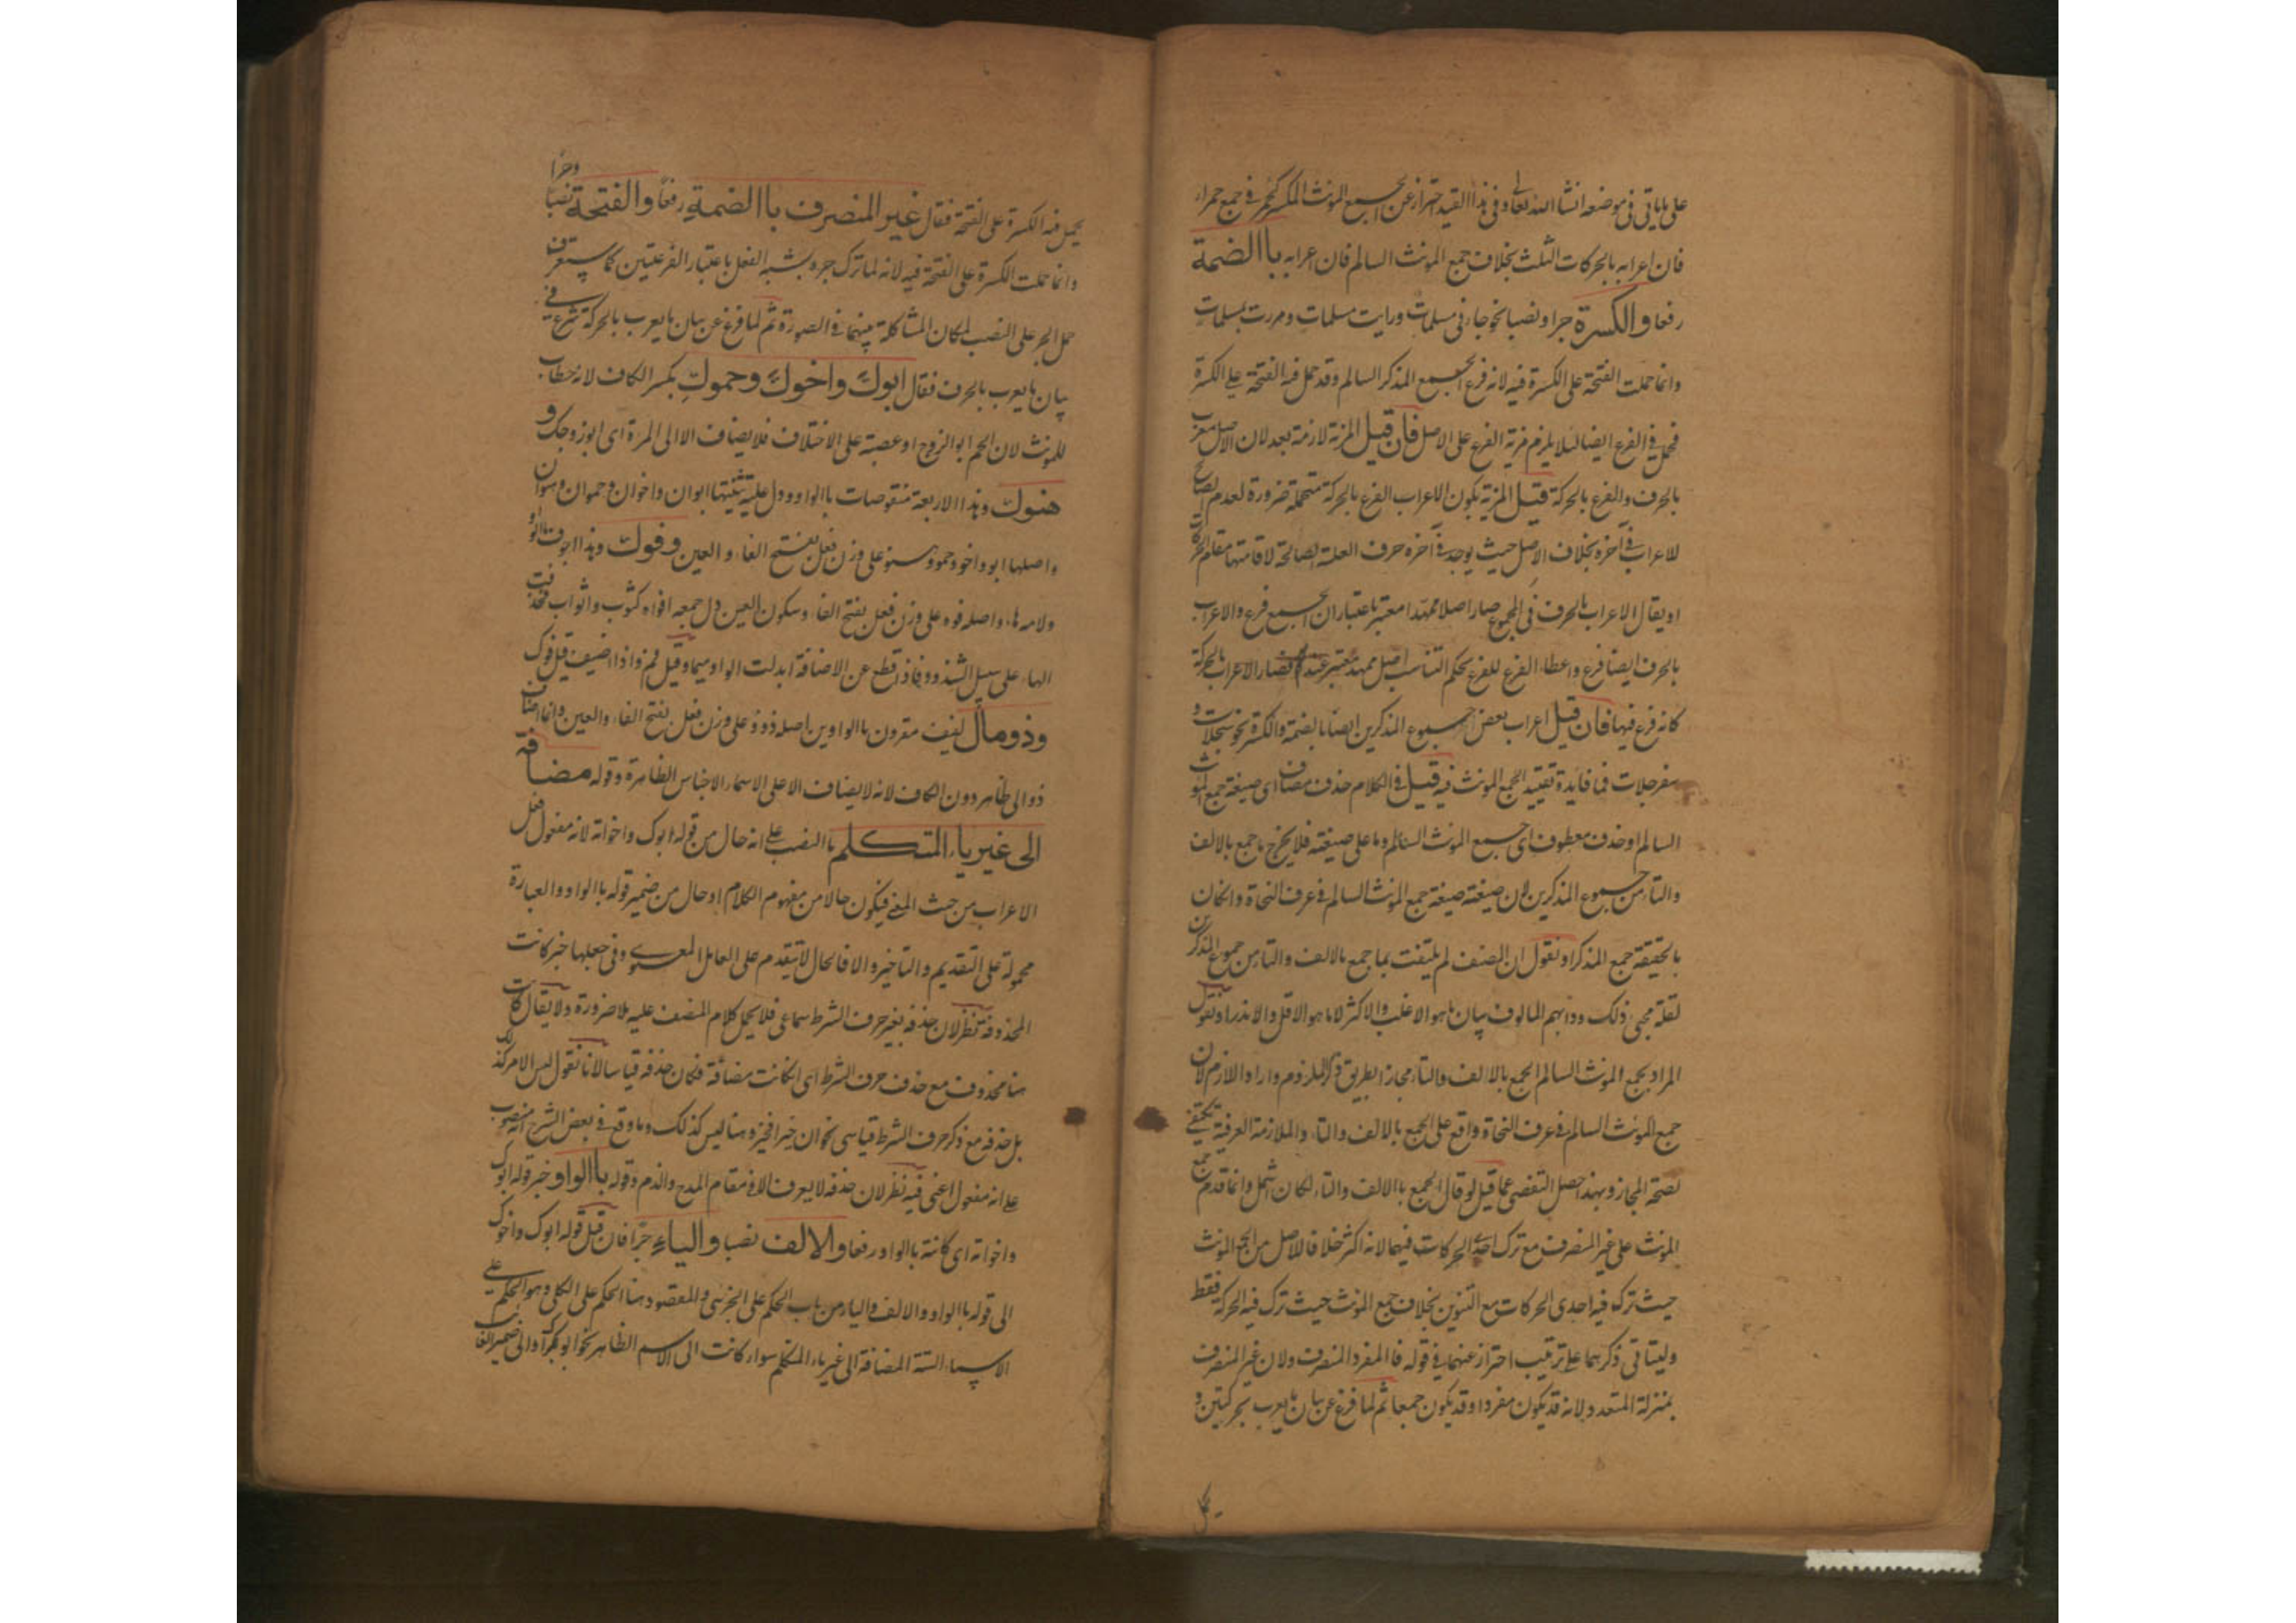 على ما ياتى فى موضعه انشا الله تعالى وفى هذا القيد احتراز عن الجمع المونث المكسر كحمر فى جمع حمراء
فان اعرابه بالحركات الثلث بخلاف جمع المونث السالم فان اعرابه باالضمة
رفعا والكسرة جرا ونصبا نحو جاءنى مسلمات ورايت مسلمات ومررت بمسلمات
وانما حملت الفتحة على الكسرة فيه لانه فرع الجمع المذكر السالم وقد حمل فيه الفتحة على الكسرة
فحمل فى الفرع ايضا لئلا يلزم مزية الفرع على الاصل فان قيل المزية لازمة بعد لان الاصل معرب
بالحرف والفرع بالحركة قيل المزية بكون الاعراب الفرع بالحركة متحملة ضرورة لعدم الصالح
للاعراب فى آخره بخلاف الاصل حيث يوجد فى آخره حرف العلة الصالحة لاقامتها مقام الحركات
او يقال الاعراب بالحرف فى المجموع صار اصلا ممهدا معتبر باعتبار ان الجمع فرع والاعراب
بالحرف ايضا فرع واعطاء الفرع للفرع بحكم التناسب اصل ممهد معتبر عندهم فصار الاعراب بالحركة
كانه فرع فيها فان قيل اعراب بعض جموع المذكرين ايضا بالضمة والكسرة نحو سجلات و
سفرجلات فما فايدة تقييد الجمع المونث فيه قيل فى الكلام حذف مضاف اى صيغة جمع المونث
السالم او حذف معطوف اى جمع المونث السالم وما على صيغته فلا يخرج ما جمع بالالف
والتاء من جموع المذكرين لان صيغته صيغة جمع المونث السالم فى عرف النحاة وانكان
بالحقيقة جمع المذكر او نقول ان المصنف لم يلتفت بما جمع بالالف والتاء من جموع المذكرين
لقلة مجئ ذلك ودابهم المالوف بيان ما هو الاغلب والاكثر لا ما هو الاقل والاندر او نقول
المراد بجمع المونث السالم الجمع بالالف والتاء مجازا بطريق ذكر الملزوم واراد اللازم لان
جمع المونث السالم فى عرف النحاة واقع على الجمع بالالف والتاء والملازمة العرفية تكتفى
لصحة المجاز وبهذا حصل التفصى عما قيل لو قال الجمع باالالف والتاء لكان اشمل وانما قدم جمع
المونث على غير المنصرف مع ترك احدى الحركات فيهما لانه اكثر خلافا للاصل من الجمع المونث
حيث ترك فيه احدى الحركات مع التنوين بخلاف جمع المونث حيث ترك فيه الحركة فقط
وليتاتى ذكرهما على ترتيب احتراز عنهما فى قوله فاالمفرد المنصرف ولان غير المنصرف
بمنزلة المتعدد لانه قد يكون مفردا وقد يكون جمعا ثم لما فرغ عن بيان ما يعرب بحركتين و
يحمل
يحمل فيه الكسرة على الفتحة فقال غير المنصرف باالضمة رفعا والفتحة نصبا
وجرا
وانما حملت الكسرة على الفتحة فيه لانه لما ترك جره بشبه الفعل باعتبار الفرعيتين كما ستعرف
حمل الجر على النصب لمكان المشاكلة بينهما فى الصورة ثم لما فرغ عن بيان ما يعرب بالحركة شرع فى
بيان ما يعرب بالحرف فقال ابوك واخوك وحموك بكسر الكاف لانه خطاب
للمونث لان الحم ابو الزوج او عصبة على الاختلاف فلا يضاف الا الى المرءة اى ابو زوجك و
هنوك وهذا الاربعة منقوصات باالواو ودل عليه تثنيتها ابوان واخوان وحموان وهنوان
واصلها ابو واخو وحمو وهنو على وزن فعل بفتح الفاء والعين وفوك وهذا اجوف باالواو
ولامه هاء واصله فوه على وزن فعل بفتح الفاء وسكون العين دل جمعه افواه كثوب واثواب فحذفت
الهاء على سبيل الشذوذ فاذا قطع عن الاضافة ابدلت الواو ميما وقيل فم واذا اضيف قيل فوك
وذومال لفيف مقرون باالواوين اصله ذوو على وزن فعل بفتح الفاء والعين وانما اضاف
ذو الى ظاهر دون الكاف لانه لا يضاف الا على الاسماء الاجناس الظاهرة وقوله مضافة
الى غير ياء المتكلم باالنصب على انه حال من قوله ابوك واخواته لانه مفعول فعل
الاعراب من حيث المعنى فيكون حالا من مفهوم الكلام او حال من ضمير قوله باالواو والعبارة
محمولة على التقديم والتاخير والا فالحال لا يتقدم على العامل المعنوى وفى جعلها خبر كانت
المحذوفة نظر لان حذفه بغير حرف الشرط سماعى فلا يحمل كلام المصنف عليه بلا ضرورة ولا يقال كانت
هنا محذوف مع حذف حرف الشرط اى انكانت مضافة فكان حذفه قياسا لانا نقول ليس الامر كذلك
بل حذفه مع ذكر حرف الشرط قياسى نحو ان خيرا فخير وهنا ليس كذلك وما وقع فى بعض الشرح انه منصوب
على انه مفعول اعنى فيه نظر لان حذفه لا يعرف الا فى مقام المدح والذم وقوله باالواو خبر قوله ابوك
واخواته اى كائنة باالواو رفعا والالف نصبا والياء جرا فان قيل قوله ابوك واخوك
الى قوله باالواو والالف والياء من باب الحكم على الجزئى والمقصود هنا الحكم على الكلى وهو الحكم على
الاسماء الستة المضافة الى غير ياء المتكلم سواء كانت الى الاسم الظاهر نحو ابو بكر او الى ضمير الغائب